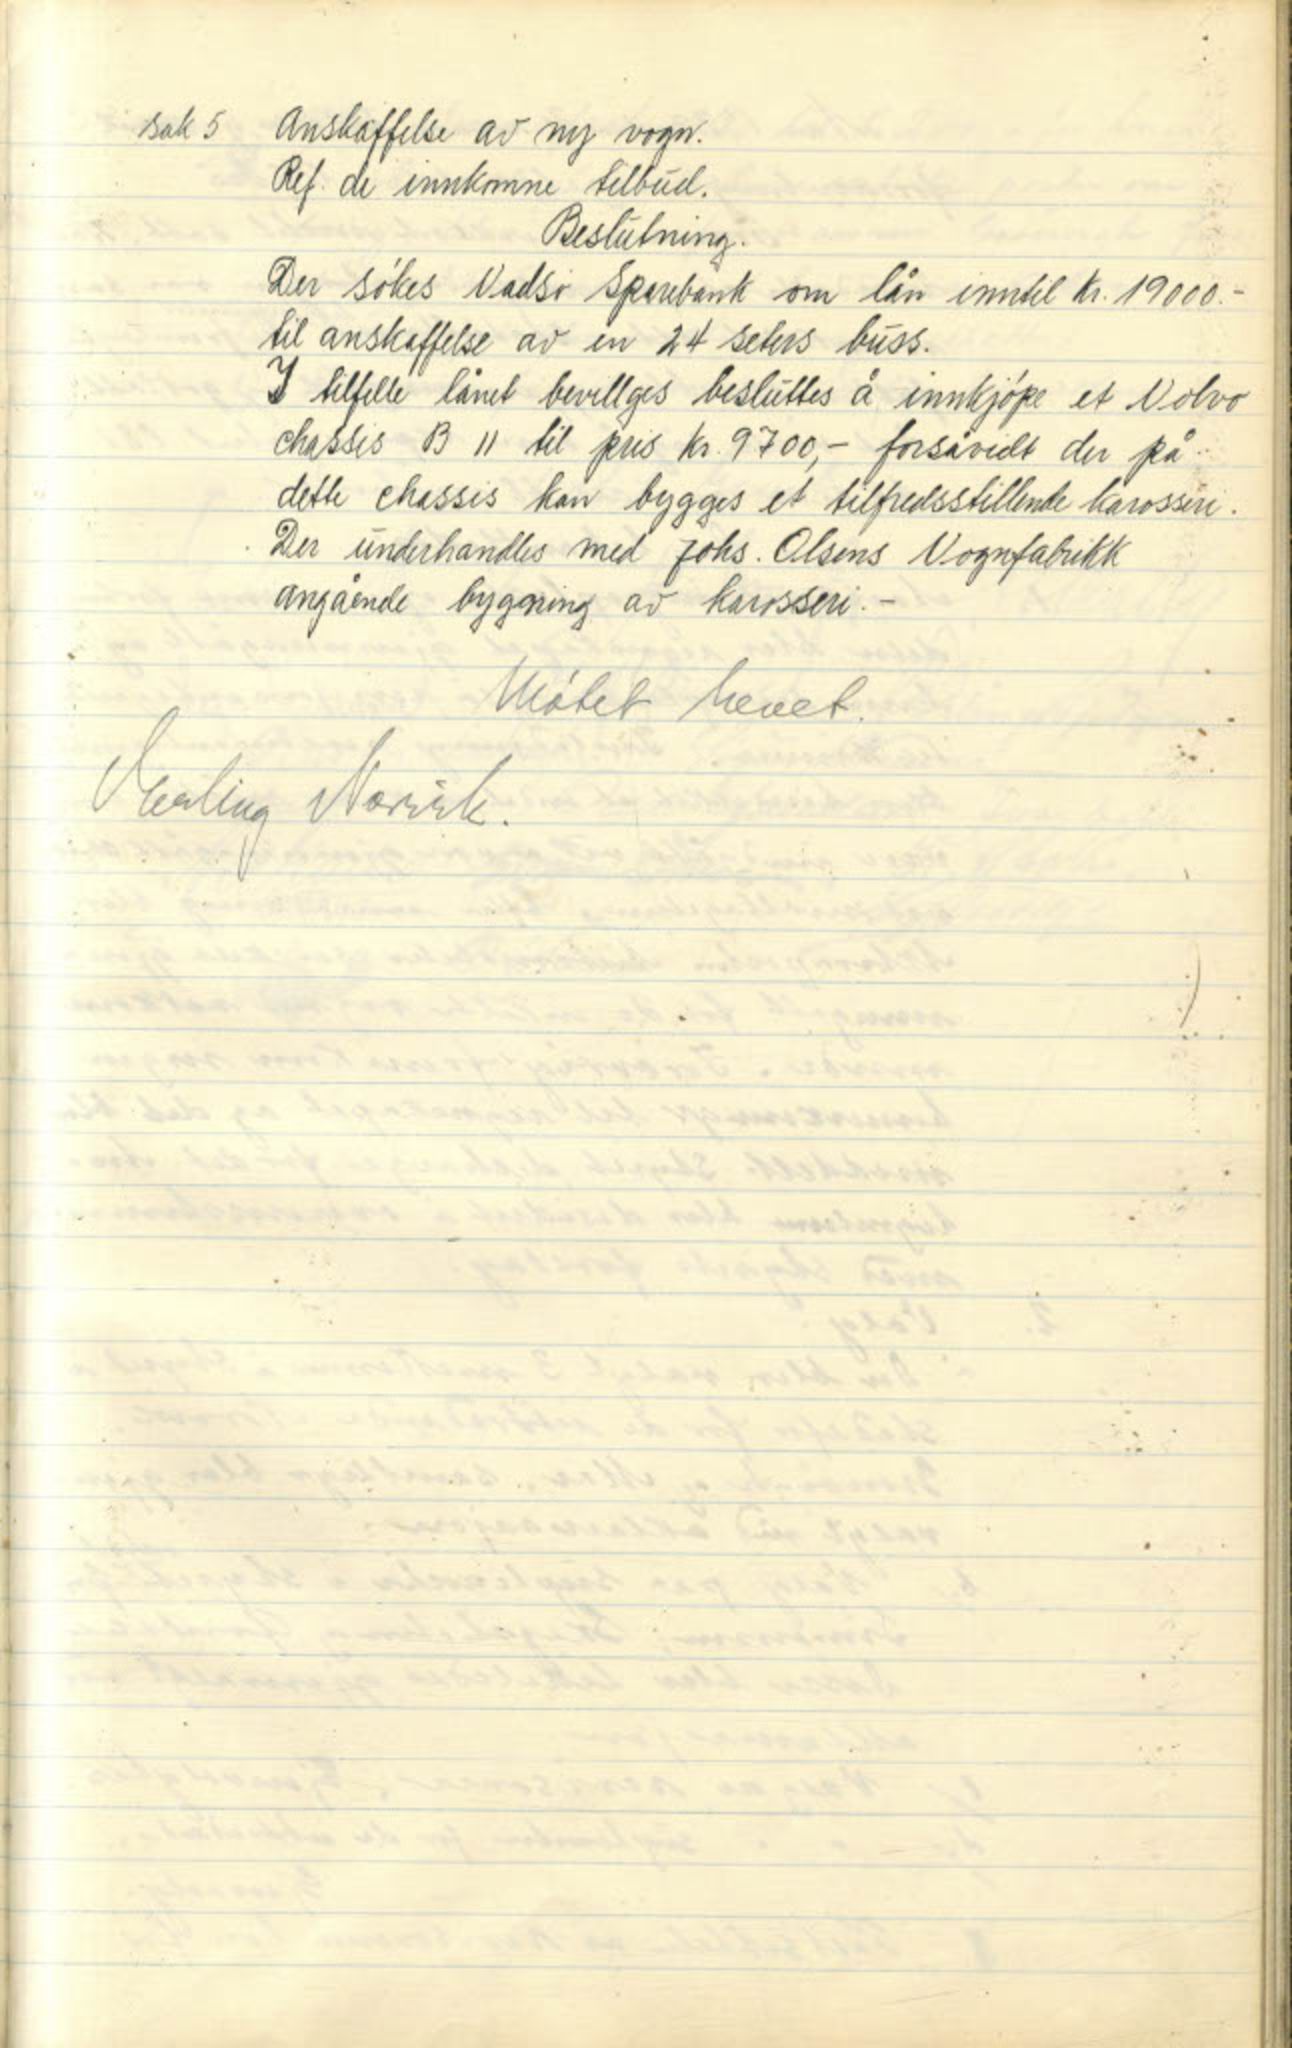 sak 5 Anskaffelse av ny vogn.
Ref. de innkomne tilbud.
Beslutning.
Der søkes Vadsø Sparebank om lån inntil kr. 19000.-
til anskaffelse av en 24 seters buss.
I tilfelle lånet bevillges besluttes å innkjøpe et Volvo
chassis B 11 til pris kr. 9700,- forsåvidt der på
dette chassis kan bygges et tilfredsstillende karosseri.
Der underhandles med Johs. Olsens Vognfabrikk
angående bygning av karosseri. -
Møtet hevet.